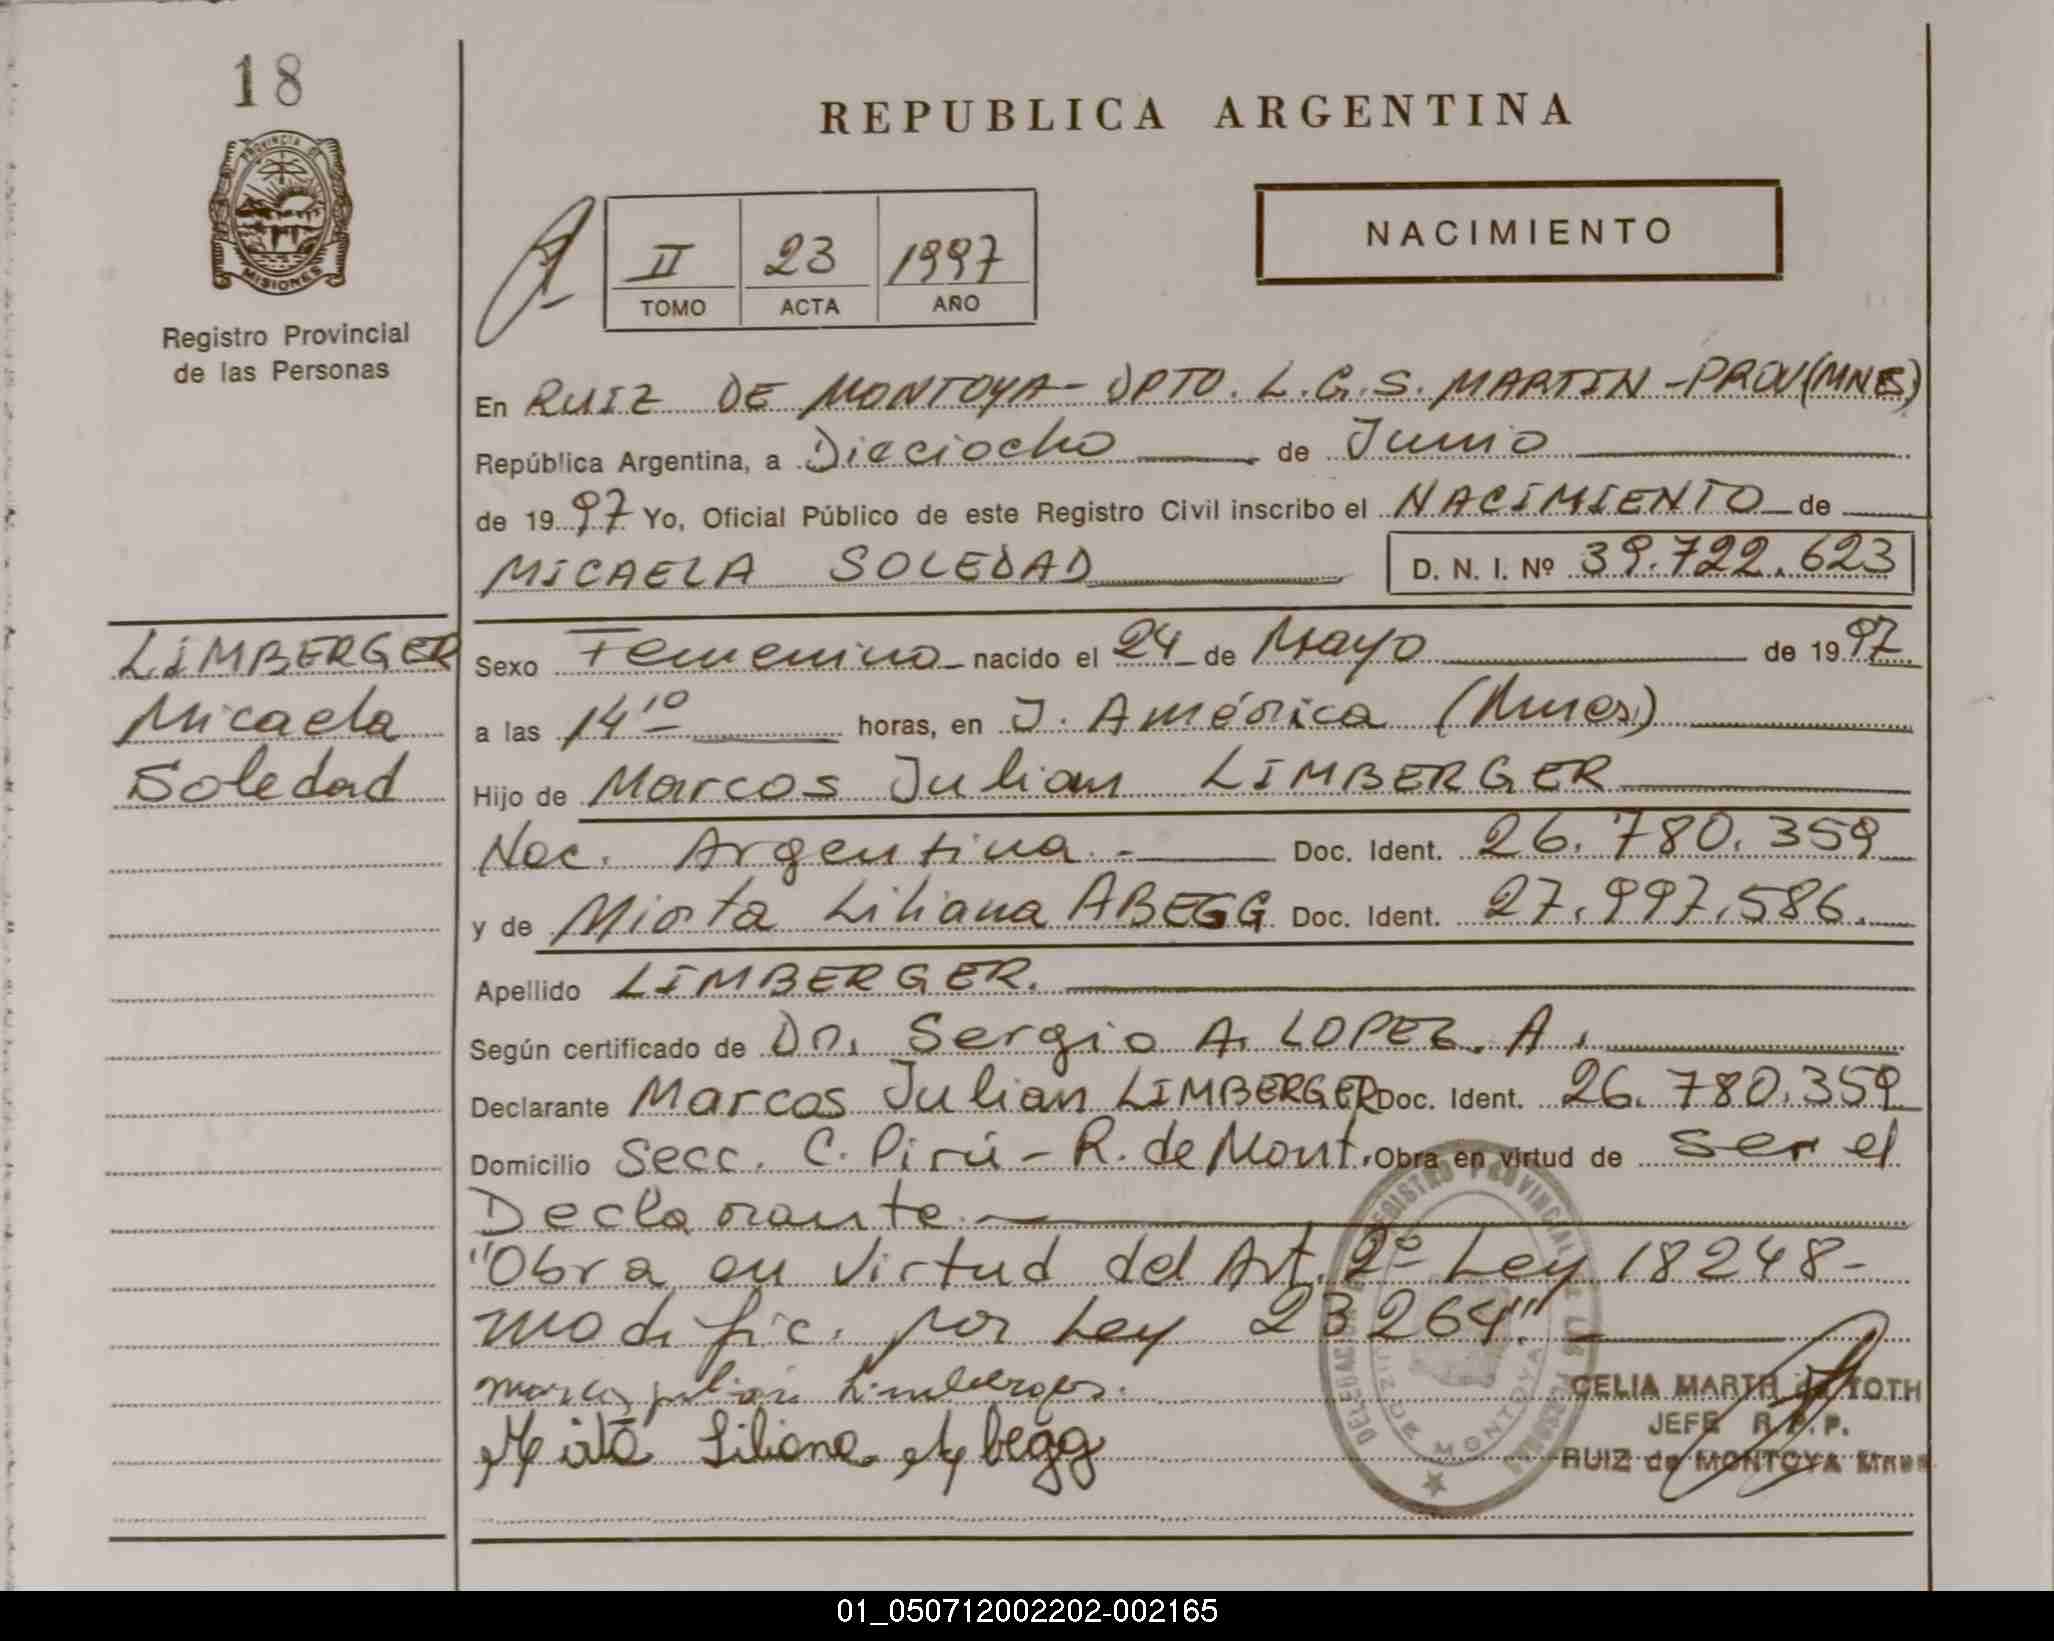 18
PROVINCIA DE
MISIONES
Registro Provincial
de las Personas
LIMBERGER
Micaela
Soledad
REPUBLICA ARGENTINA
NACIMIENTO
II 23 1997
TOMO ACTA AÑO
En RUIZ DE MONTOYA - DPTO. L.G.S. MARTIN - PROV(MNES)
República Argentina, a Dieciocho de Junio
de 1997 Yo, Oficial Público de este Registro Civil inscribo el NACIMIENTO de
MICAELA SOLEDAD D. N. I. Nº 39.722.623
Sexo Femenino nacido el 24 de Mayo de 1997
a las 14 10 horas, en J. América (Mnes)
Hijo de Marcos Julian LIMBERGER
Nac. Argentina.- Doc. Ident. 26.780.359
y de Mirta Liliana ABEGG Doc. Ident. 27.997.586.
Apellido LIMBERGER.
Según certificado de Dr. Sergio A. LOPEZ. A.
Declarante Marcos Julian LIMBERGER Doc. Ident. 26.780.359
Domicilio Secc. C. Pirú - R. de Mont. Obra en virtud de ser el
Declarante.
"Obra en virtud del Art. 2º Ley 18248-
modific. por Ley 23264".
marcos julian Limberger.
Mirta Liliana Abegg
DELEGACION REGISTRO PROVINCIAL DE LAS PERSONAS
RUIZ DE MONTOYA
CELIA MARTA de TOTH
JEFE R.P.P.
RUIZ de MONTOYA Mnes
01_050712002202-002165